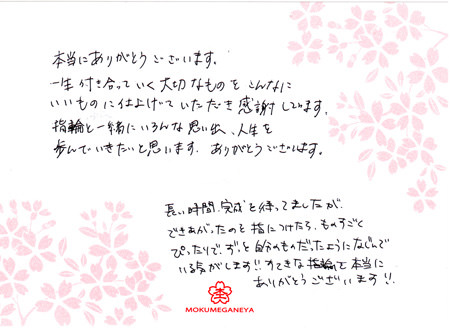 本当にありがとうございます。
一生付き合っていく大切なものをこんなに
いいものに仕上げていただき感謝してます。
指輪と一緒にいろんな思い出、人生を
歩んでいきたいと思います。ありがとうございます。
長い時間、完成を待ってましたが、
できあがったのを指につけたら、ものすごく
ぴったりで、ずっと自分のものだったようになじんで
いる気がします!! すてきな指輪を本当に
ありがとうございます!!
MOKUMEGANEYA